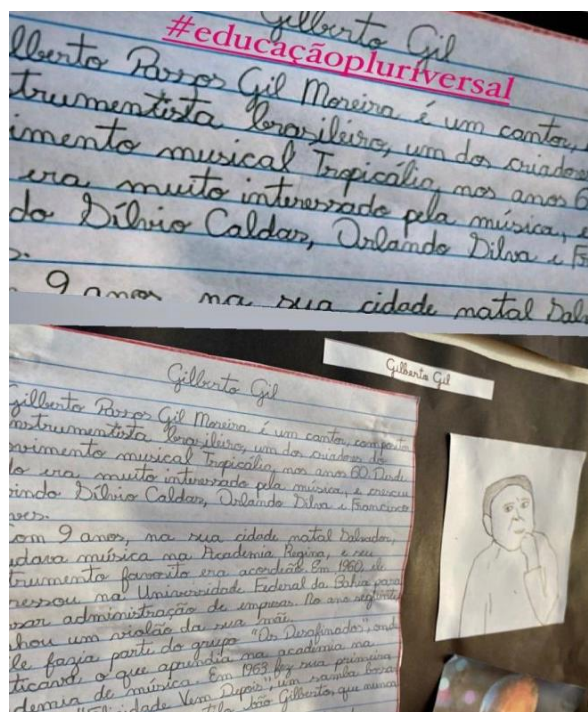 Gilberto Gil
#educaçãopluriversal
lberto Passos Gil Moreira é um cantor,
trumentista brasileiro, um dos criadores
imento musical Tropicália, nos anos 6
era muito interessado pela música, e
do Sílvio Caldas, Orlando Silva e Fr
s.
9 anos na sua cidade natal Salv
Gilberto Gil
Gilberto Gil
Gilberto Passos Gil Moreira é um cantor, composito
nstrumentista brasileiro, um dos criadores do
ovimento musical Tropicália, nos anos 60. Desde
do era muito interessado pela música, e cresceu
vindo Sílvio Caldas, Orlando Silva e Francisco
ves.
om 9 anos, na sua cidade natal Salvador,
udava música na Academia Regina, e seu
trumento favorito era acordeão. Em 1960, ele
ressou na Universidade Federal da Bahia para
sar administração de empresas. No ano seguinte
hou um violão da sua mãe.
le fazia parte do grupo "Os Desafinados", onde
ticava o que aprendia na academia na
demia de música. Em 1963 fez sua primeira
"Felicidade Vem Depois", um samba bossa
João Gilberto, que nunca